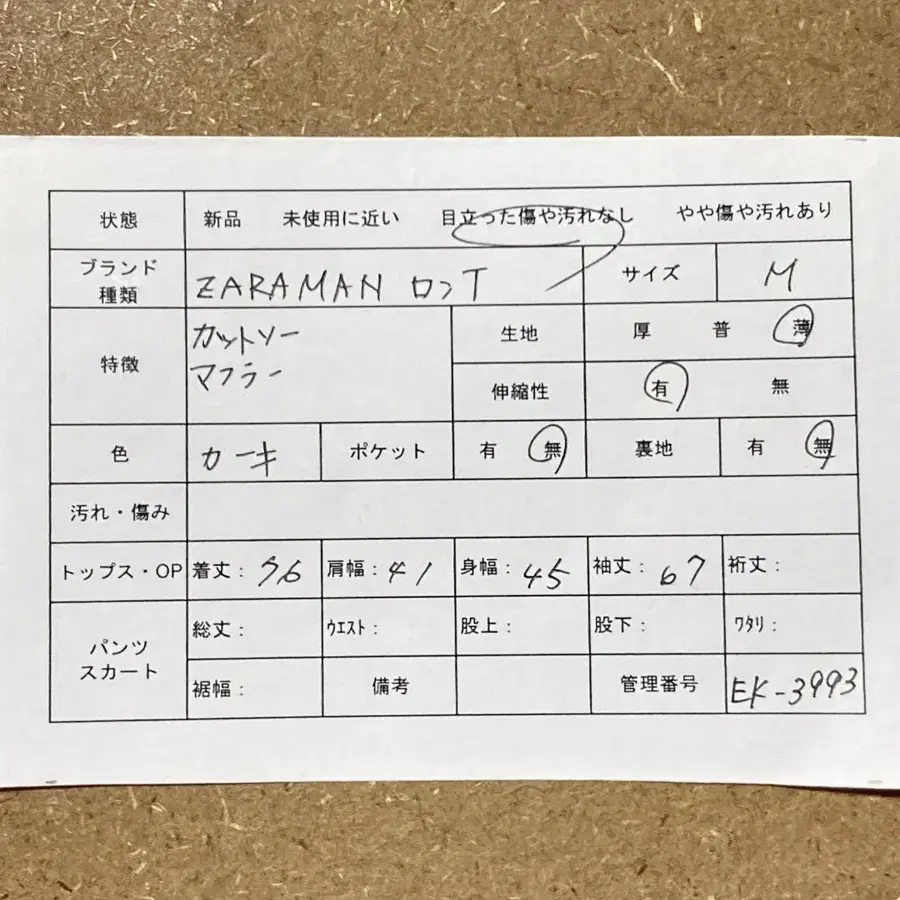 状態 新品 未使用に近い 目立った傷や汚れなし やや傷や汚れあり
ブランド 種類 ZARAMAN ロンT サイズ M
特徴 カットソー
マフラー
生地 厚 普 薄
伸縮性 有 無
色 カーキ ポケット 有 無 裏地 有 無
汚れ・傷み
トップス・OP 着丈: 76 肩幅: 41 身幅: 45 袖丈: 67 裄丈:
パンツ スカート 総丈: ウエスト: 股上: 股下: ワタリ:
裾幅: 備考 管理番号 EK-3993